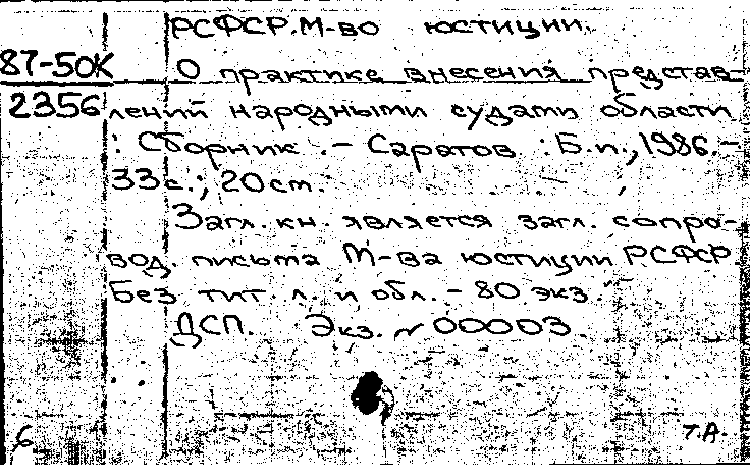 РСФСР. М-во юстиции.
87-50К
О практике внесения представ-
2356
лений народными судами области
: Сборник. - Саратов : Б.и., 1986. -
33с.; 20см.
Загл. кн. является загл. сопро-
вод. письма М-ва юстиции РСФСР
Без тит. л. и обл. - 80 экз.
ДСП. Экз. N 00003
6
т.А.